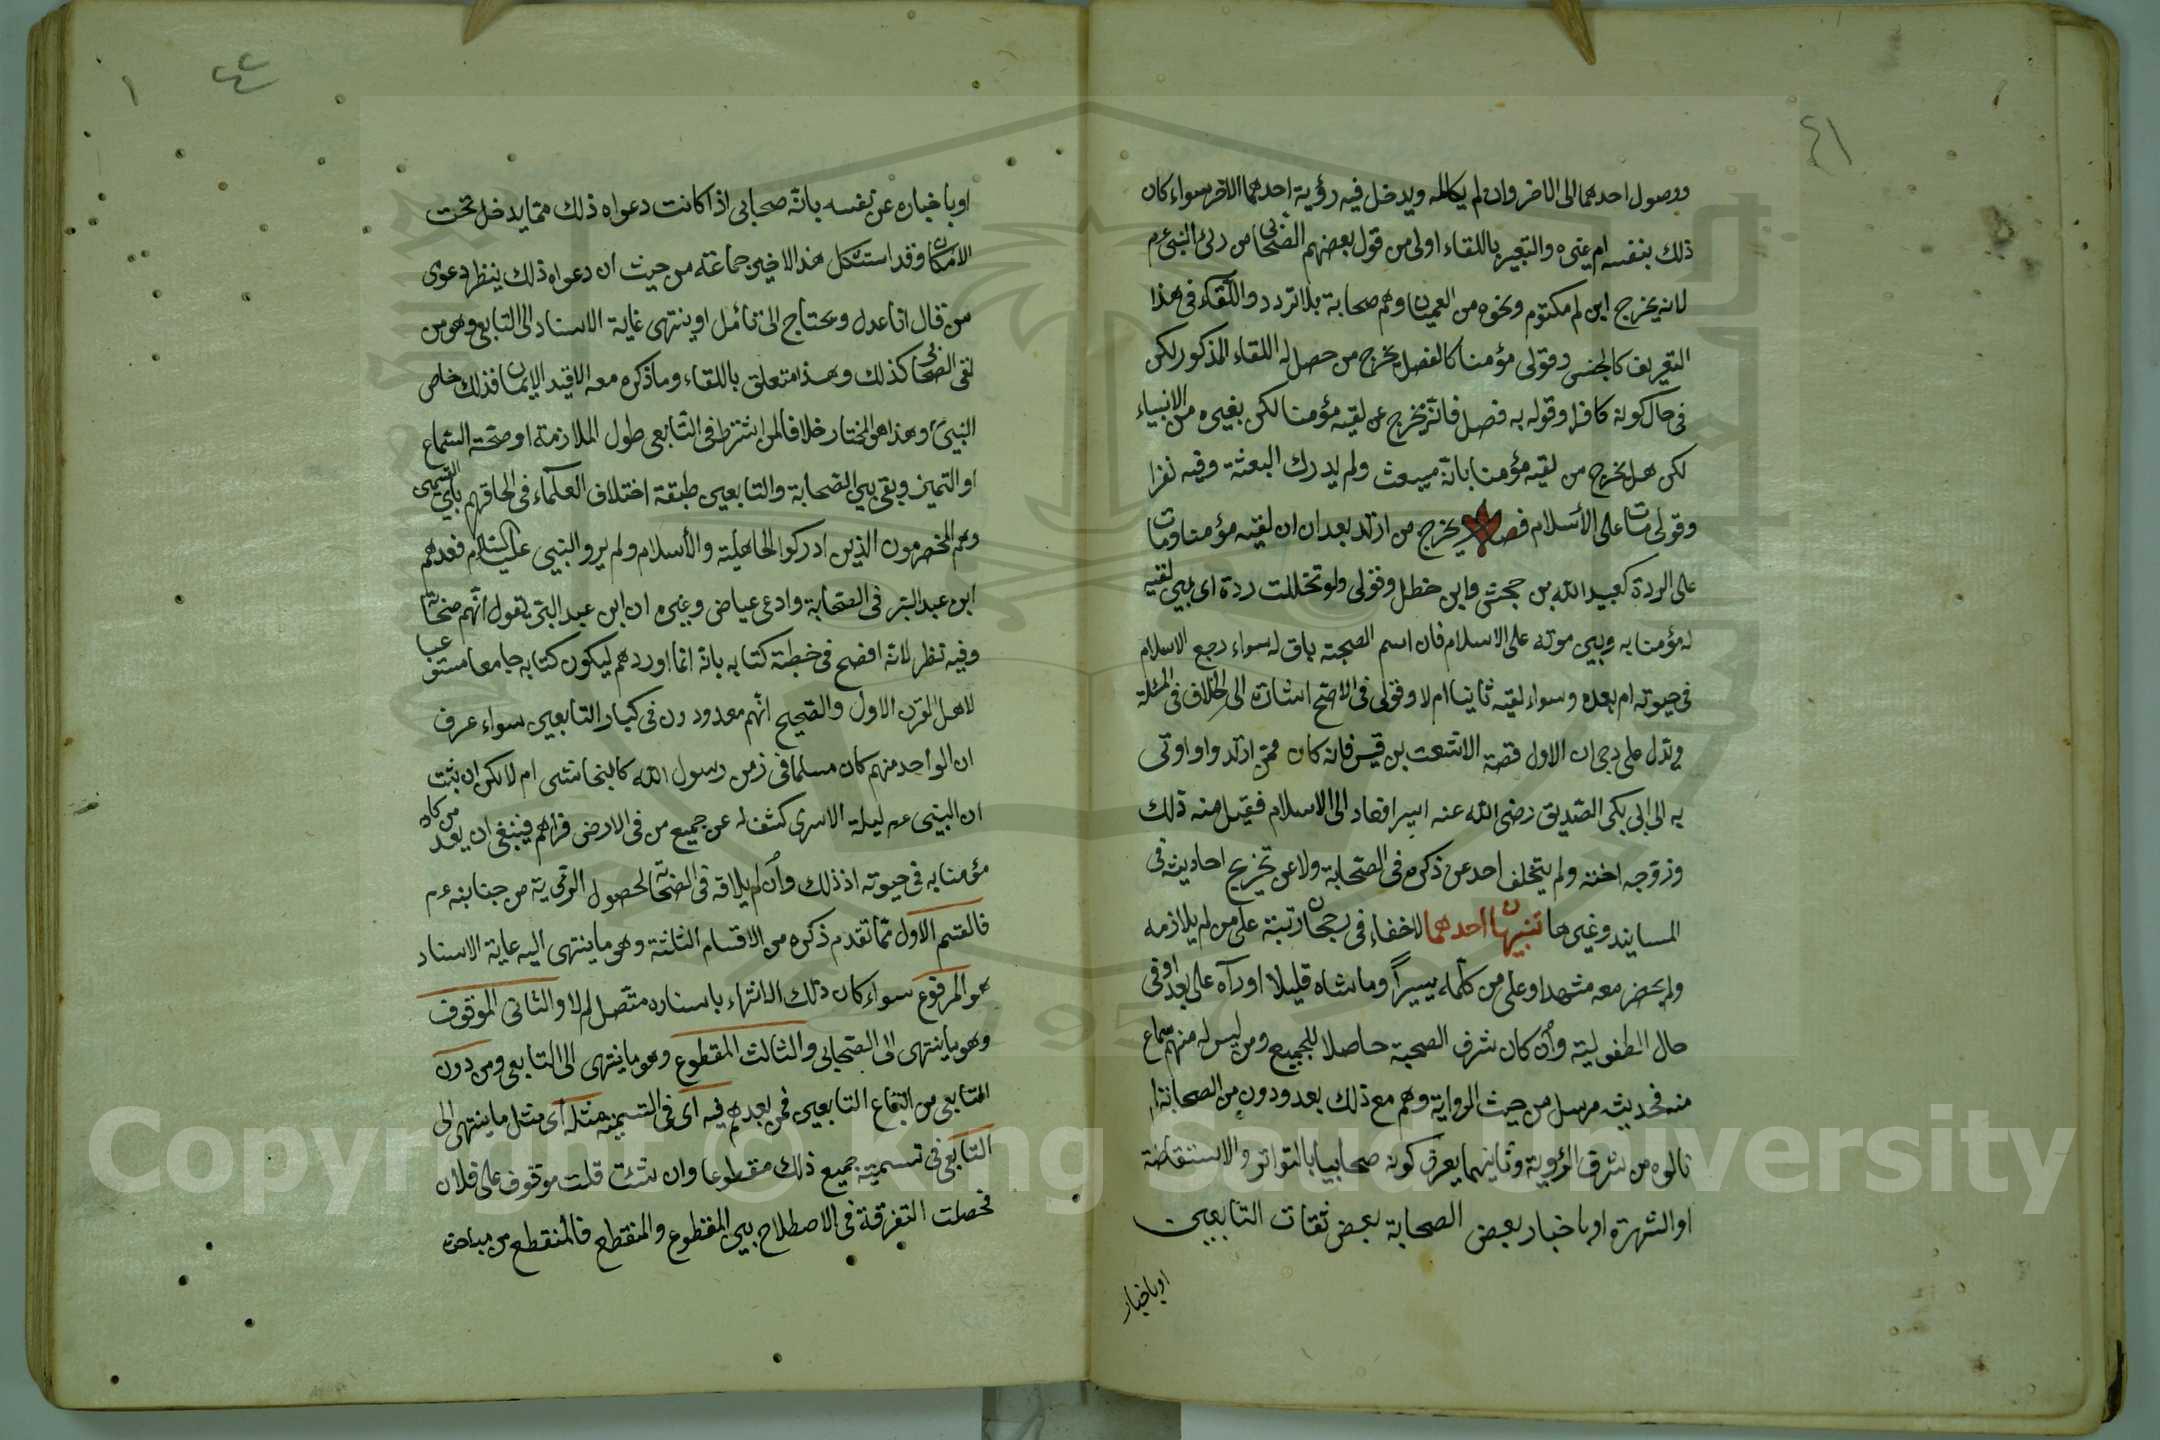 ٤١
ووصول احدهما الى الاخر وان لم يكالمه ويدخل فيه رؤية احدهما الاخر سواء كان
ذلك بنفسه ام غيره والتعبير باللقاء اولى من قول بعضهم الصحابى من رأى النبى عم
لانه يخرج ابن ام مكتوم ونحوه من العميان وهم صحابة بلا تردد واللقاء فى هذا
التعريف كالجنس وقولى مؤمنا كالفصل يخرج من حصل له اللقاء المذكور لكن
فى حال كونه كافرا وقوله به فصل فانه يخرج من لقيه مؤمنا لكن بغيره من الانبياء
لكن هل يخرج من لقيه مؤمنا بانه سيبعث ولم يدرك البعثة وفيه نظر
وقولى مات على الأسلام فصل يخرج من ارتد بعد ان لقيه مؤمنا ومات
على الردة كعبيد الله بن جحش وابن خطل وقولى ولو تخللت ردة اى بين لقيه
له مؤمنا به وبين موته على الاسلام فان اسم الصحبة باق له سواء رجع الاسلام
فى حيوته ام بعده وسواء لقيه ثانيا ام لا وقولى فى الاصح اشارة الى الخلاف فى المسئلة
ويدل على رجحان الاول قصة الاشعث بن قيس فانه كان ممن ارتد واوتى
به الى ابى بكر الصديق رضى الله عنه اسيرا فعاد الى الاسلام فقبل منه ذلك
وزوجه اخته ولم يتخلف احد عن ذكره فى الصحابة ولا عن تخريج احاديثه فى
المسانيد وغيرها تنبيهان احدهما لا خفاء فى رجحان رتبة على من لم يلازمه
ولم يحضر معه مشهدا وعلى من كلمه يسيرا وماشاه قليلا او رآه على بعد او فى
حال الطفولية وأن كان شرف الصحبة حاصلا للجميع ومن ليس له منهم سماع
منه فحديثه مرسل من حيث الرواية وهم مع ذلك معدودون من الصحابة لم
نالوه من شرف الرؤية وثانيهما يعرف كونه صحابيا بالتواتر والاستفاضة
او الشهرة او باخبار بعض الصحابة بعض ثقات التابعين
او باخبار
١
او باخباره عن نفسه بانه صحابى اذا كانت دعواه ذلك مما يدخل تحت
الامكان وقد استشكل هذا الاخير جماعة من حيث ان دعواه ذلك ينظر دعوى
من قال انا عدل ويحتاج الى تأمل او ينتهى غاية الاسناد الى التابعى وهو من
لقى الصحابى كذلك وهذا متعلق باللقاء وما ذكره معه الا قيد الايمان فذلك خاص
النبى وهذا هو المختار خلافا لمن اشترط فى التابعى طول الملازمة او صحة السماع
او التميز وبقى بين الصحابة والتابعين طبقة اختلاف العلماء فى الحاقهم باى القسمين
وهم المخضرمون الذين ادركوا الجاهلية والأسلام ولم يروا النبى عليه السلام فعدهم
ابن عبد البر فى الصحابة وادعى عياض وغيره ان ابن عبد البر يقول انهم صحابة
وفيه نظر لانه افصح فى خطبة كتابه بانه انما اوردهم ليكون كتابه جامعا مستوعبا
لاهل القرن الاول والصحيح انهم معدودون فى كبار التابعين سواء عرف
ان الواحد منهم كان مسلما فى زمن رسول الله كالنجاشى ام لا لكن ان ثبت
ان النبى عم ليلة الاسرى كشف له عن جميع من فى الارض فراهم فينبغى ان يعد من كان
مؤمنا به فى حيوته اذ ذلك وأن لم يلاقه فى الصحابة لحصول الرؤية من جنابه عم
فالقسم الاول مما تقدم ذكره من الاقسام الثلثة وهو ما ينتهى اليه غاية الاسناد
هو المرفوع سواء كان ذلك الانتهاء باسناده متصل ام لا والثانى الموقوف
وهو ما ينتهى الى الصحابى والثالث المقطوع وهو ما ينتهى الى التابعى ومن دون
التابعى من اتباع التابعين فمن بعدهم فيه اى فى التسمية مثله اى مثل ما ينتهى الى
التابعى فى تسمية جميع ذلك مقطوعا وان شئت قلت موقوف على فلان
فحصلت التفرقة فى الاصطلاح بين المقطوع والمنقطع فالمنقطع من مباحث
Copyright © King Saud University
1957